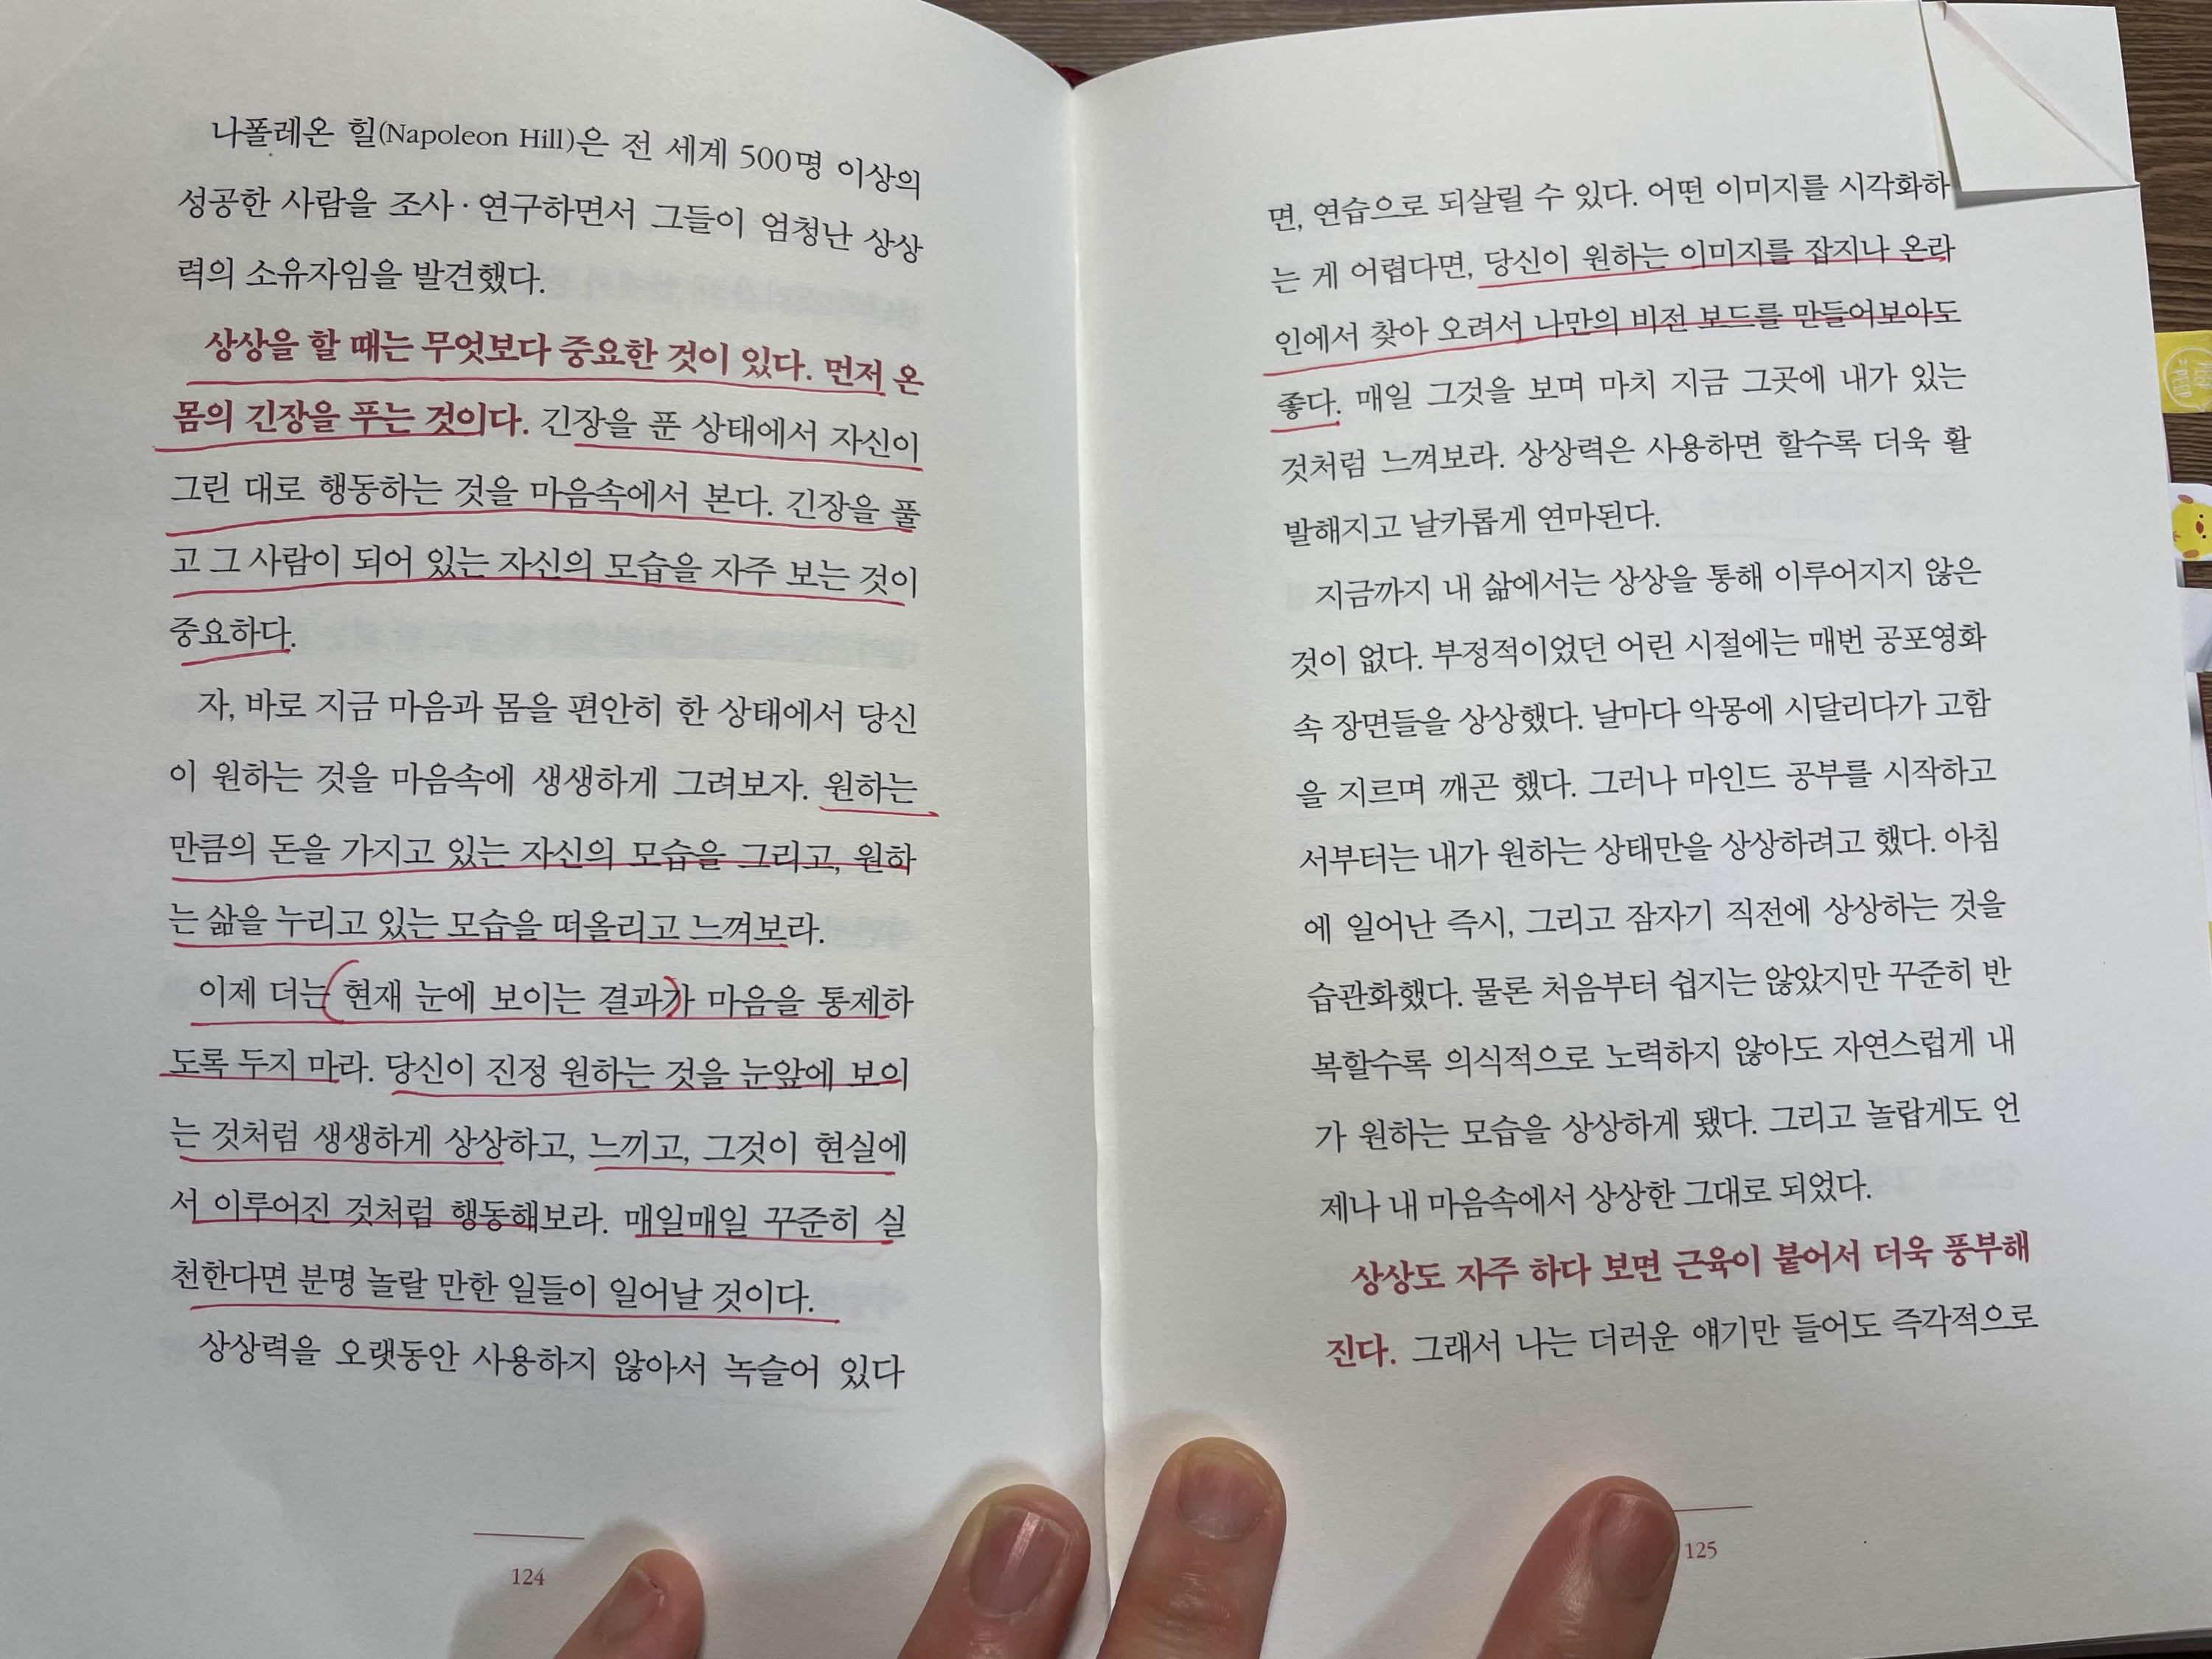 나폴레온 힐(Napoleon Hill)은 전 세계 500명 이상의
성공한 사람을 조사·연구하면서 그들이 엄청난 상상
력의 소유자임을 발견했다.
상상을 할 때는 무엇보다 중요한 것이 있다. 먼저 온
몸의 긴장을 푸는 것이다. 긴장을 푼 상태에서 자신이
그린 대로 행동하는 것을 마음속에서 본다. 긴장을 풀
고 그 사람이 되어 있는 자신의 모습을 자주 보는 것이
중요하다.
자, 바로 지금 마음과 몸을 편안히 한 상태에서 당신
이 원하는 것을 마음속에 생생하게 그려보자. 원하는
만큼의 돈을 가지고 있는 자신의 모습을 그리고, 원하
는 삶을 누리고 있는 모습을 떠올리고 느껴보라.
이제 더는 현재 눈에 보이는 결과가 마음을 통제하
도록 두지 마라. 당신이 진정 원하는 것을 눈앞에 보이
는 것처럼 생생하게 상상하고, 느끼고, 그것이 현실에
서 이루어진 것처럼 행동해보라. 매일매일 꾸준히 실
천한다면 분명 놀랄 만한 일들이 일어날 것이다.
상상력을 오랫동안 사용하지 않아서 녹슬어 있다
124
면, 연습으로 되살릴 수 있다. 어떤 이미지를 시각화하
는 게 어렵다면, 당신이 원하는 이미지를 잡지나 온라
인에서 찾아 오려서 나만의 비전 보드를 만들어보아도
좋다. 매일 그것을 보며 마치 지금 그곳에 내가 있는
것처럼 느껴보라. 상상력은 사용하면 할수록 더욱 활
발해지고 날카롭게 연마된다.
지금까지 내 삶에서는 상상을 통해 이루어지지 않은
것이 없다. 부정적이었던 어린 시절에는 매번 공포영화
속 장면들을 상상했다. 날마다 악몽에 시달리다가 고함
을 지르며 깨곤 했다. 그러나 마인드 공부를 시작하고
서부터는 내가 원하는 상태만을 상상하려고 했다. 아침
에 일어난 즉시, 그리고 잠자기 직전에 상상하는 것을
습관화했다. 물론 처음부터 쉽지는 않았지만 꾸준히 반
복할수록 의식적으로 노력하지 않아도 자연스럽게 내
가 원하는 모습을 상상하게 됐다. 그리고 놀랍게도 언
제나 내 마음속에서 상상한 그대로 되었다.
상상도 자주 하다 보면 근육이 붙어서 더욱 풍부해
진다. 그래서 나는 더러운 얘기만 들어도 즉각적으로
125